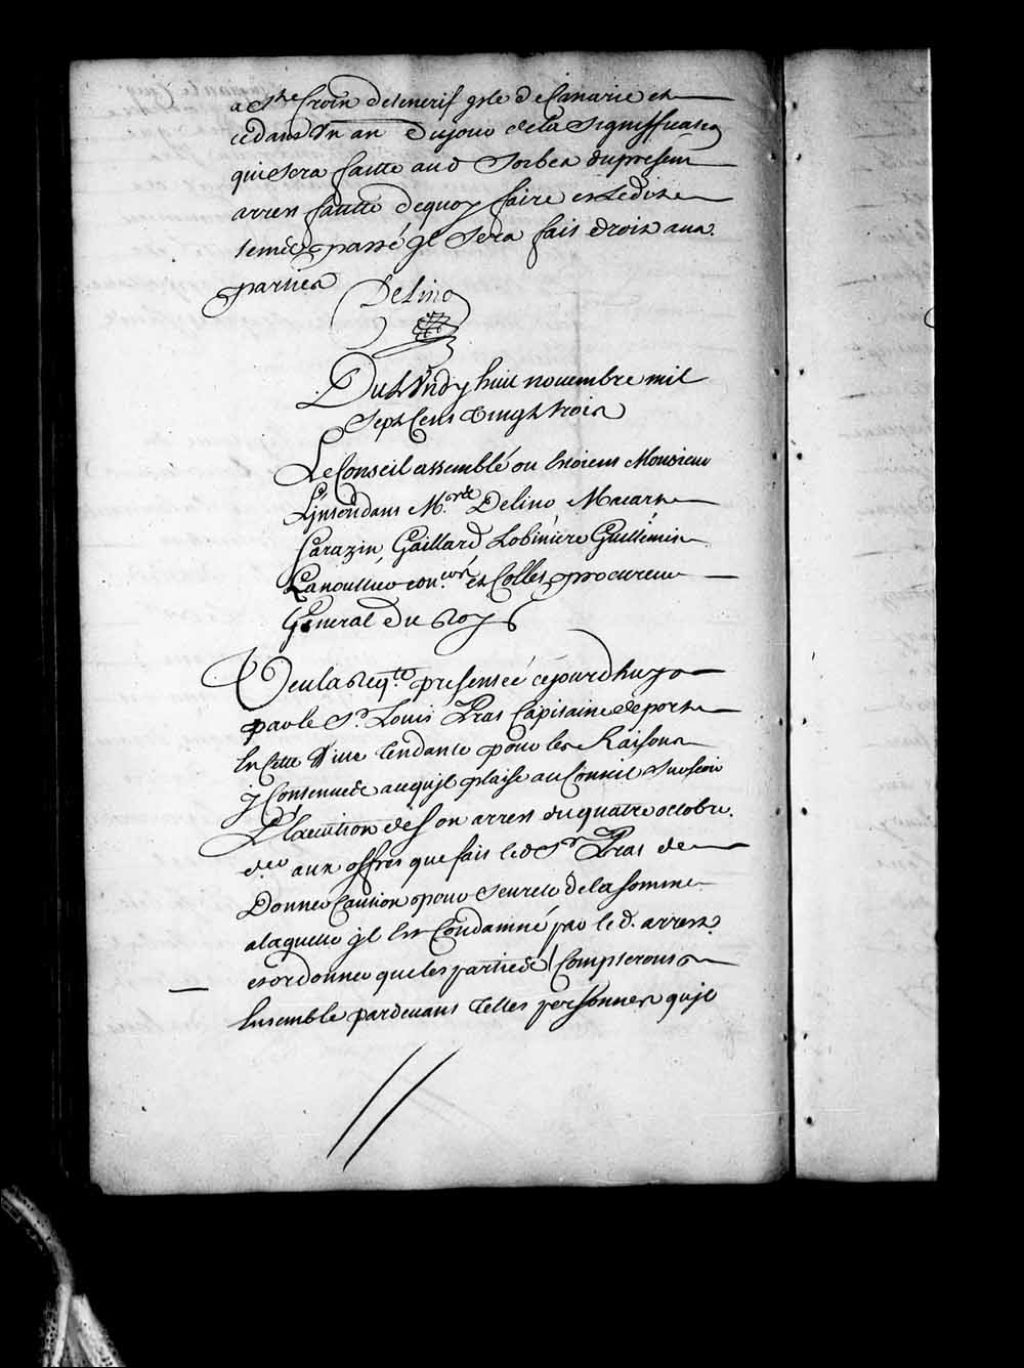 a Ste Croix de tenerif isle de Canarie et
ce dans Vn an du jour de la Signiffication
qui sera faitte aud Sorbes du present
arrest fautte de quoy faire et Ledit
temps passé jl Sera fait droit aux
parties
Delino
Du Lundy huit novembre mil
Sept Cens vingt trois
Le Conseil assemblé ou Estoient Monsieur
L'jntendant Mrs Delino, Macart
Sarazin, Gaillard Lobiniere Guillimin
Lanoullier coners et Collet procureur
General du Roy
Veu la Reqte presentée cejourd'huy
par le Sr Louis Pras Capitaine de port
En Cette Ville tendante pour les Raisons
y Contenues a ce qu'jl plaise au Conseil Surseoir
L'execution de son arrest du quatre octobre
der aux offres que fait led Sr Pras de
Donner Caution pour Seureté de la somme
a laquelle jl Est Condamné par led. arrest
et ordonner que les parties Compteront
Ensemble pardevant telles personnes qu'jl